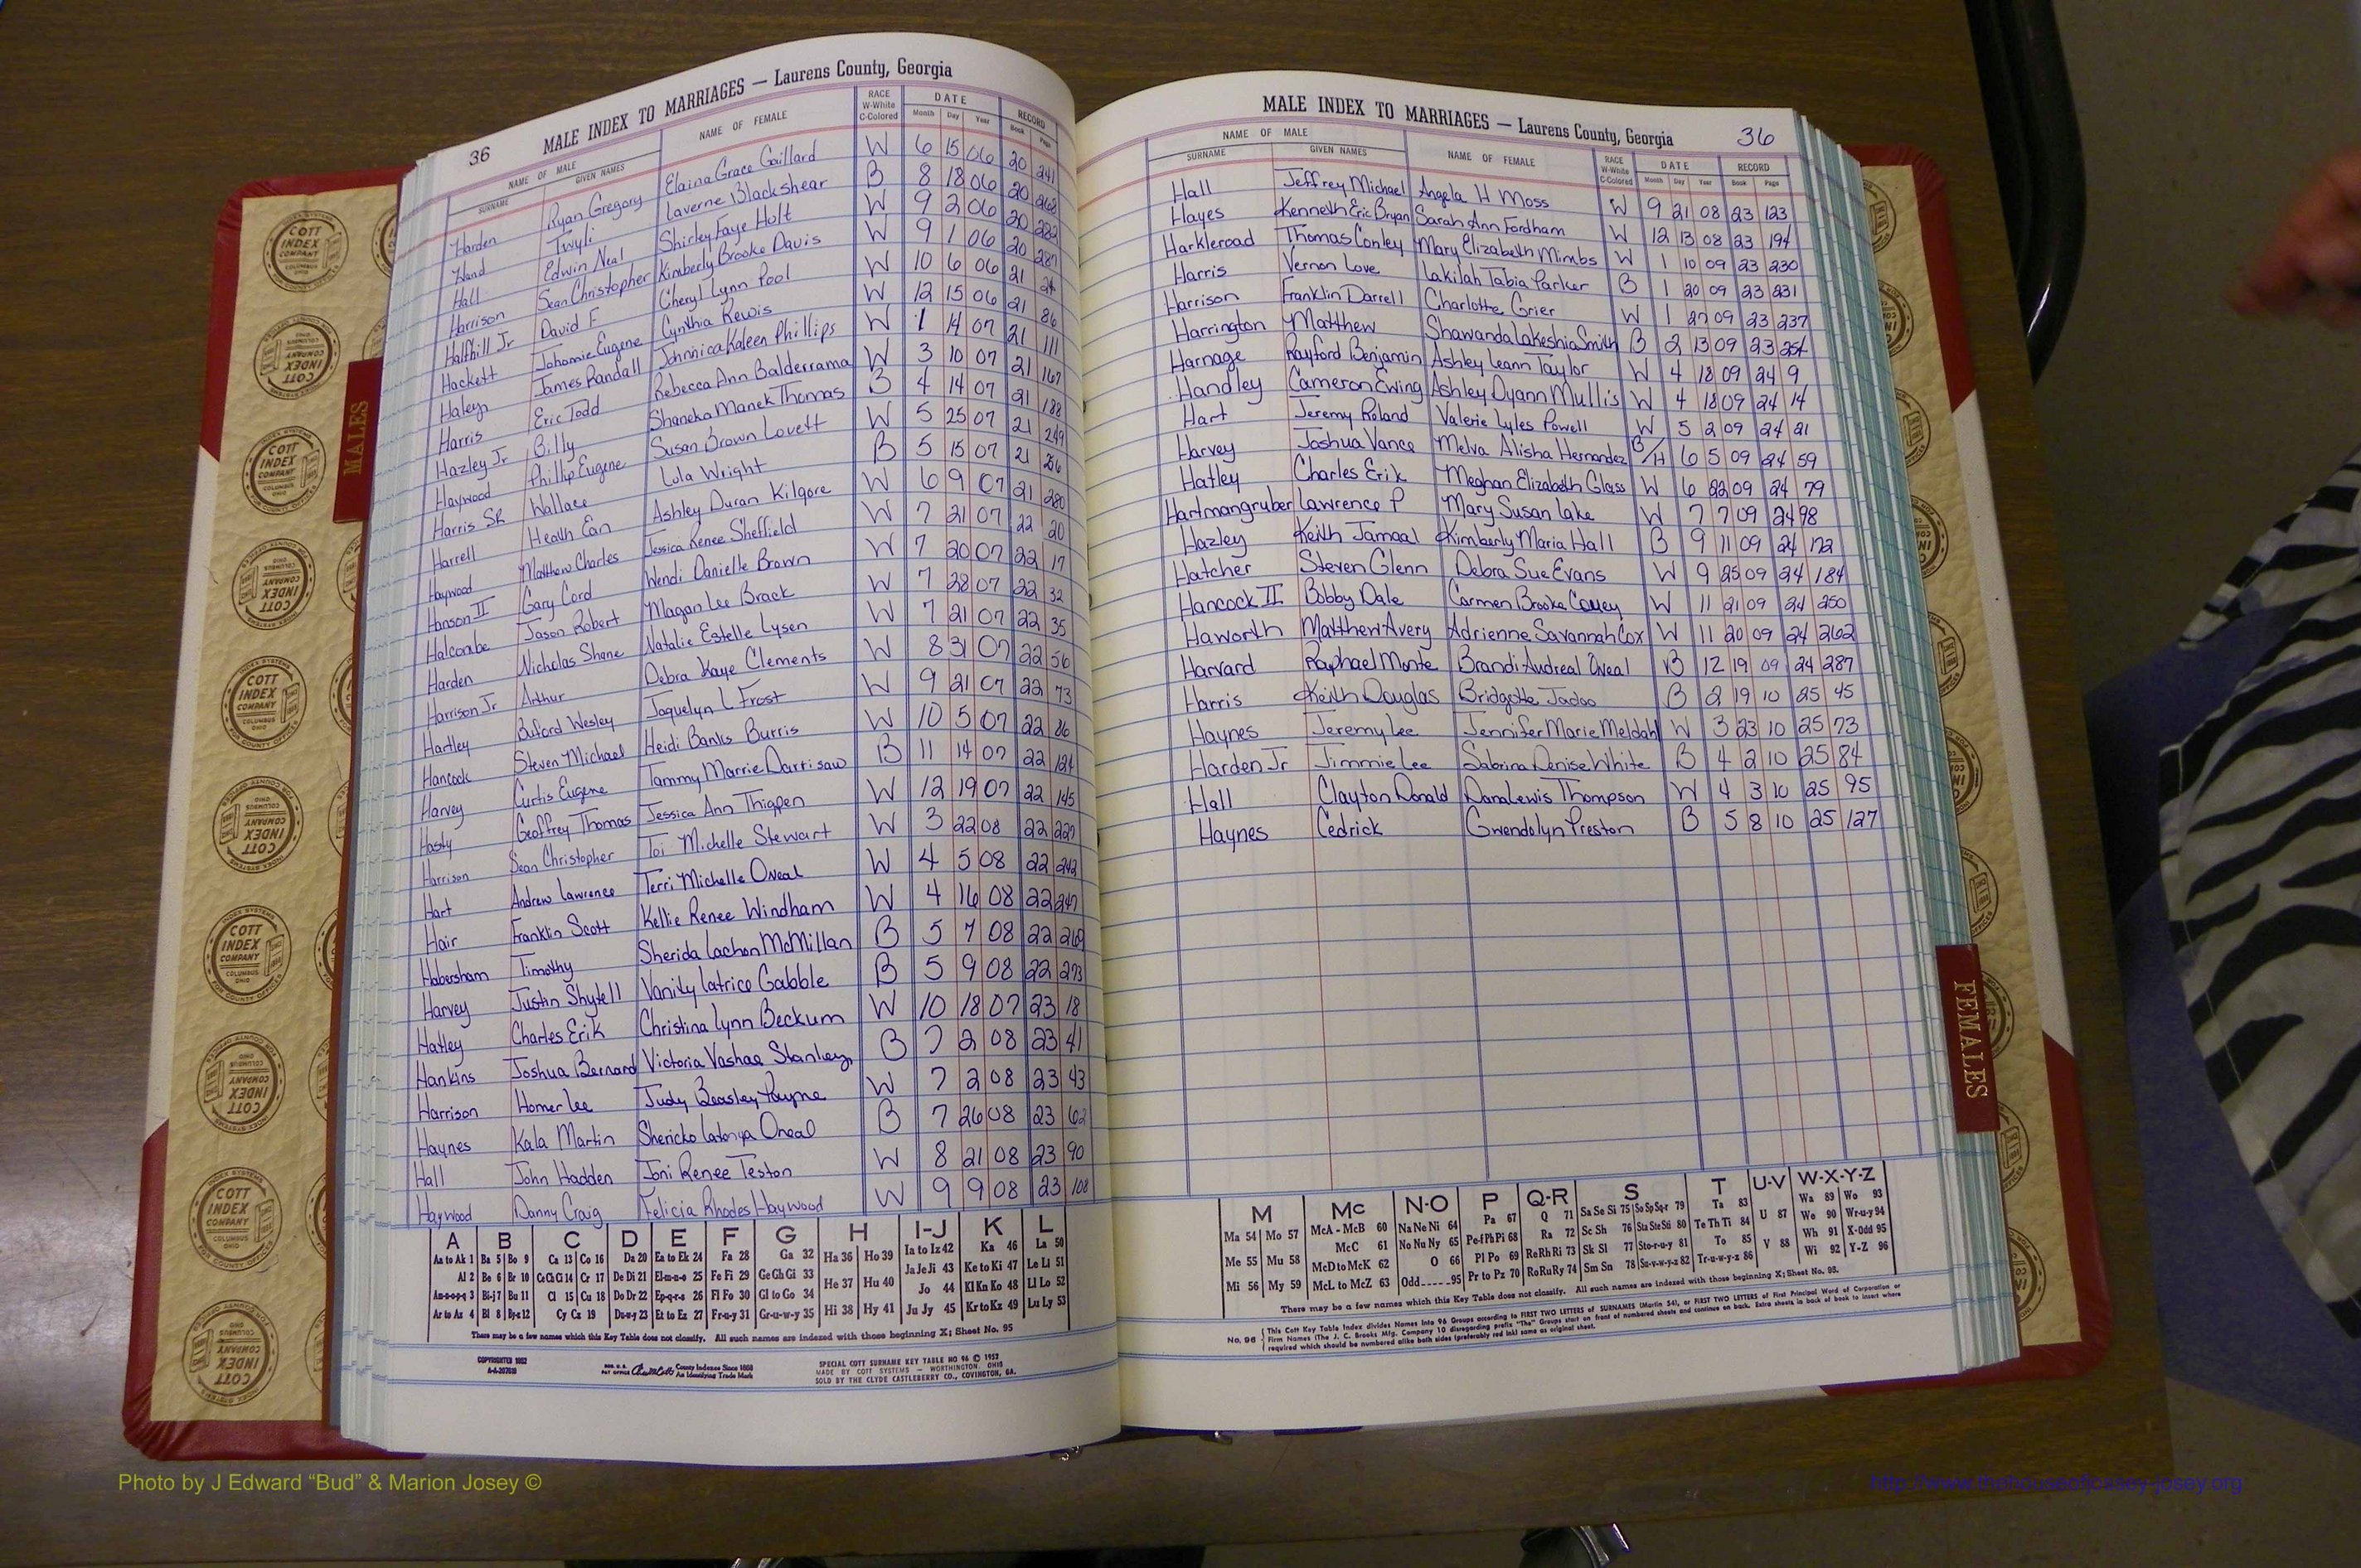 36 MALE INDEX TO MARRIAGES — Laurens County, Georgia
NAME OF MALE NAME OF FEMALE RACE W-White C-Colored DATE RECORD
SURNAME GIVEN NAMES Month Day Year Book Page
Harden Ryan Gregory Elaina Grace Gaillard W 6 15 06 20 241
Hand Twyli Laverne Blackshear B 8 18 06 20 268
Hall Edwin Neal Shirley Faye Holt W 9 2 06 20 282
Harrison Sean Christopher Kimberly Brooke Davis W 9 1 06 20 287
Halfhill Jr David F Cheryl Lynn Pool W 10 6 06 21
Hackett Johnnie Eugene Cynthia Rewis W 12 15 06 21 86
Haley James Randall Johnnica Kaleen Phillips W 1 14 07 21 111
Harris Eric Todd Rebecca Ann Balderrama W 3 10 07 21 167
Hazley Jr Billy Shaneka Manek Thomas B 4 14 07 21 188
Haywood Phillip Eugene Susan Brown Lovett W 5 25 07 21 249
Harris SR Wallace Lula Wright B 5 15 07 21 256
Harrell Heath Ean Ashley Duran Kilgore W 6 9 07 21 280
Haywood Matthew Charles Jessica Renee Sheffield W 7 21 07 22 20
Hanson II Gary Cord Wendi Danielle Brown W 7 20 07 22 17
Halcombe Jason Robert Magan Lee Brack W 7 28 07 22 32
Harden Nicholas Shane Natalie Estelle Lysen W 7 21 07 22 35
Harrison Jr Arthur Debra Kaye Clements W 8 31 07 22 56
Hartley Buford Wesley Jaquelyn L Frost W 9 21 07 22 73
Hancock Steven Michael Heidi Banks Burris W 10 5 07 22 86
Harvey Curtis Eugene Tammy Marrie Dartisaw B 11 14 07 22 124
Hasty Geoffrey Thomas Jessica Ann Thigpen W 12 19 07 22 145
Harrison Sean Christopher Toi Michelle Stewart W 3 22 08 22 227
Hart Andrew Lawrence Terri Michelle Oneal W 4 5 08 22 242
Hair Franklin Scott Kellie Renee Windham W 4 16 08 22 247
Habersham Timothy Sherida Lachon McMillan B 5 7 08 22 269
Harvey Justin Shytell Vanity Latrice Gabble B 5 9 08 22 273
Hatley Charles Erik Christina Lynn Beckum W 10 18 07 23 18
Hankins Joshua Bernard Victoria Vashae Stanley B 7 2 08 23 41
Harrison Homer Lee Judy Beasley Payne W 7 2 08 23 43
Haynes Kala Martin Shericka Latonya Oneal B 7 26 08 23 62
Hall John Hadden Joni Renee Teston W 8 21 08 23 90
Haywood Danny Craig Felicia Rhodes Haywood W 9 9 08 23 108
A B C D E F G H I-J K L
Aa to Ak 1 Ba 5 Bo 9 Ca 13 Co 16 Da 20 Ea to Ek 24 Fa 28 Ga 32 Ha 36 Ho 39 Ia to Iz 42 Ka 46 La 50
Al 2 Be 6 Br 10 Ce Ch Ci 14 Cr 17 De Di 21 El-m-n-o 25 Fe Fi 29 Ge Gh Gi 33 He 37 Hu 40 Ja Je Ji 43 Ke to Ki 47 Le Li 51
Am-n-o-p-q 3 Bi-j 7 Bu 11 Cl 15 Cu 18 Do Dr 22 Ep-q-r-s 26 Fl Fo 30 Gl to Go 34 Hi 38 Hy 41 Jo 44 Kl Kn Ko 48 Ll Lo 52
Ar to As 4 Bl 8 By-z 12 Cy Cz 19 Du-w-y 23 Et to Ez 27 Fr-u-y 31 Gr-u-w-y 35 Ju Jy 45 Kr to Kz 49 Lu Ly 53
There may be a few names which this Key Table does not classify. All such names are indexed with those beginning X; Sheet No. 95
COPYRIGHTED 1952
County Indexes Since 1888
An Identifying Trade Mark
SPECIAL COTT SURNAME KEY TABLE NO 96 © 1952
MADE BY COTT SYSTEMS — WORTHINGTON, OHIO
SOLD BY THE CLYDE CASTLEBERRY CO., COVINGTON, GA.
MALE INDEX TO MARRIAGES — Laurens County, Georgia 36
NAME OF MALE NAME OF FEMALE RACE W-White C-Colored DATE RECORD
SURNAME GIVEN NAMES Month Day Year Book Page
Hall Jeffrey Michael Angela H Moss W 9 21 08 23 123
Hayes Kenneth Eric Bryan Sarah Ann Fordham W 12 13 08 23 194
Harkleroad Thomas Conley Mary Elizabeth Mimbs W 1 10 09 23 230
Harris Vernon Love Lakilah Tabia Parker B 1 20 09 23 231
Harrison Franklin Darrell Charlotte Grier W 1 27 09 23 237
Harrington Matthew Shawanda Lakeshia Smith B 2 13 09 23 254
Harnage Rayford Benjamin Ashley Leann Taylor W 4 18 09 24 9
Handley Cameron Ewing Ashley Dyann Mullis W 4 18 09 24 14
Hart Jeremy Roland Valerie Lyles Powell W 5 2 09 24 21
Harvey Joshua Vance Melva Alisha Hernandez B/H 6 5 09 24 59
Hatley Charles Erik Meghan Elizabeth Glass W 6 22 09 24 79
Hartmangruber Lawrence P Mary Susan Lake W 7 7 09 24 98
Hazley Keith Jamaal Kimberly Maria Hall B 9 11 09 24 172
Hatcher Steven Glenn Debra Sue Evans W 9 25 09 24 184
Hancock II Bobby Dale Carmen Brooke Covey W 11 21 09 24 250
Haworth Matthew Avery Adrienne Savannah Cox W 11 20 09 24 262
Harvard Raphael Monte Brandi Audreal Oneal B 12 19 09 24 287
Harris Keith Douglas Bridgette Jadoo B 2 19 10 25 45
Haynes Jeremy Lee Jennifer Marie Meldahl W 3 23 10 25 73
Harden Jr Jimmie Lee Sabrina Denise White B 4 2 10 25 84
Hall Clayton Donald Dana Lewis Thompson W 4 3 10 25 95
Haynes Cedrick Gwendolyn Preston B 5 8 10 25 127
M Mc N-O P Q-R S T U-V W-X-Y-Z
Ma 54 Mo 57 McA - McB 60 Na Ne Ni 64 Pa 67 Q 71 Sa Se Si 75 So Sp Sq-r 79 Ta 83 U 87 Wa 89 Wo 93
Me 55 Mu 58 McC 61 No Nu Ny 65 Pe-f Ph Pi 68 Ra 72 Sc Sh 76 Sta Ste Sti 80 Te Th Ti 84 V 88 We 90 Wr-u-y 94
Mi 56 My 59 McD to McK 62 O 66 Pl Po 69 Re Rh Ri 73 Sk Sl 77 Sto-r-u-y 81 To 85 Wh 91 X-Odd 95
McL to McZ 63 Odd 95 Pr to Pz 70 Ro Ru Ry 74 Sm Sn 78 Su-v-w-y-z 82 Tr-u-w-y-z 86 Wi 92 Y-Z 96
There may be a few names which this Key Table does not classify. All such names are indexed with those beginning X; Sheet No. 95.
No. 96 This Cott Key Table Index divides Names into 96 Groups according to FIRST TWO LETTERS of SURNAMES (Martin 54), or FIRST TWO LETTERS of First Principal Word of Corporation or
Firm Names (The J. C. Brooks Mfg. Company 10 disregarding prefix "The" Groups start on front of numbered sheets and continue on back. Extra sheets in back of book to insert where
required which should be numbered alike both sides (preferably red ink) same as original sheet.
MALES
FEMALES
COTT INDEX COMPANY
COLUMBUS OHIO
INDEX SYSTEMS FOR COUNTY OFFICES
Photo by J Edward “Bud” & Marion Josey ©
http://www.thehouseofjossey-josey.org